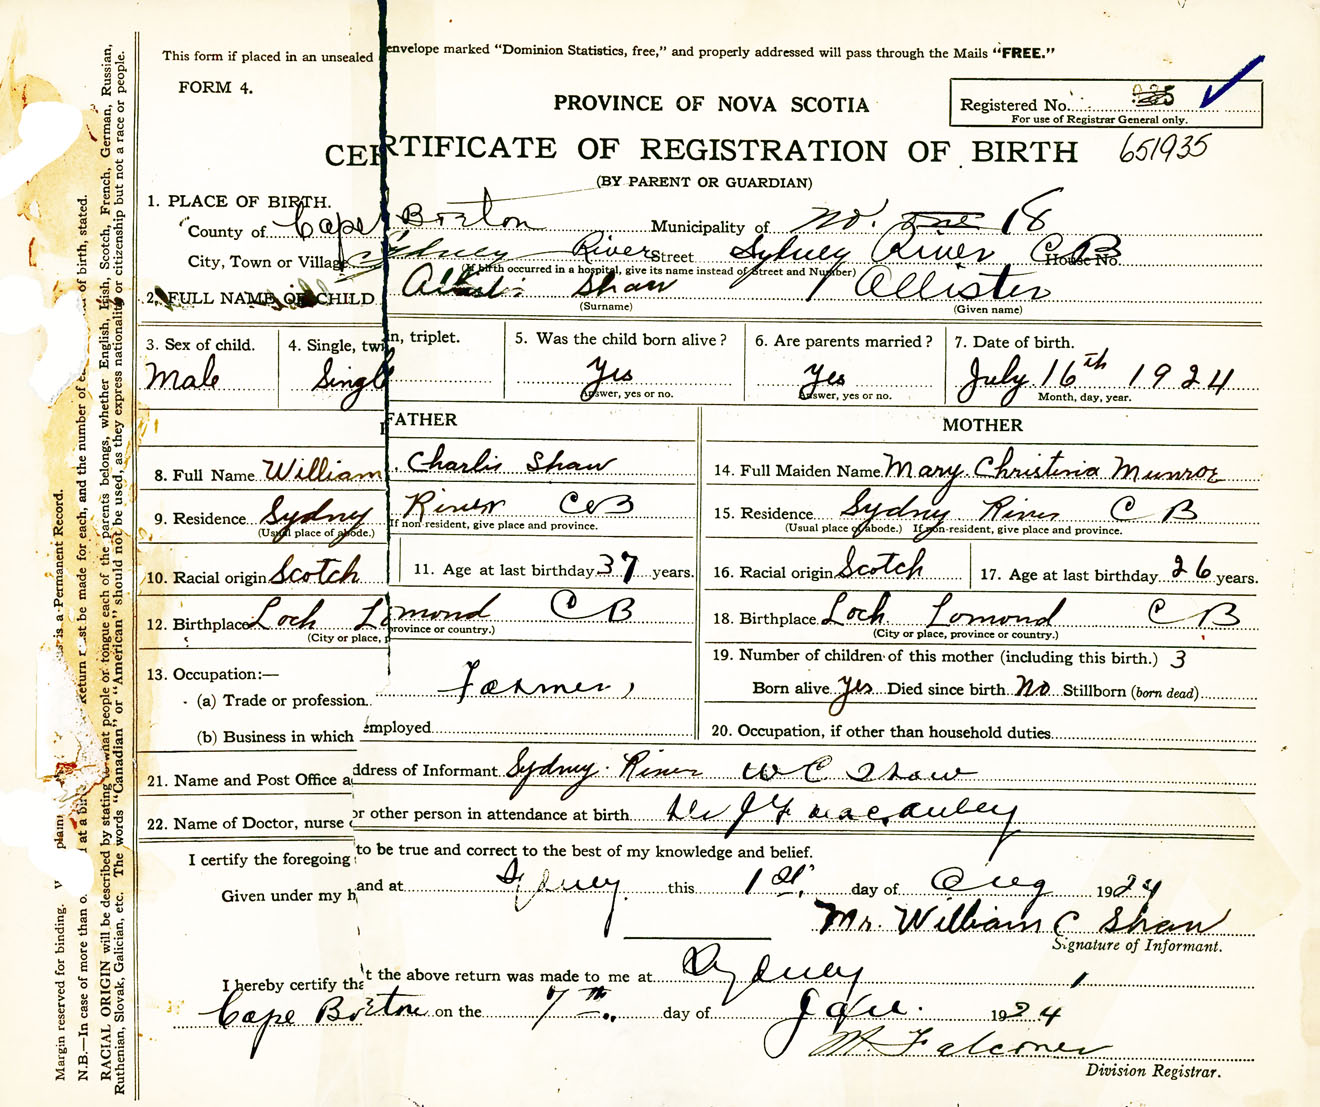 This form if placed in an unsealed envelope marked "Dominion Statistics, free," and properly addressed will pass through the Mails "FREE."
FORM 4.
PROVINCE OF NOVA SCOTIA
Registered No.
For use of Registrar General only.
CERTIFICATE OF REGISTRATION OF BIRTH 651935
(BY PARENT OR GUARDIAN)
1. PLACE OF BIRTH.
County of Cape Breton Municipality of No. 18
City, Town or Village Sydney River Street Sydney River C B House No.
(If birth occurred in a hospital, give its name instead of Street and Number)
2. FULL NAME OF CHILD Shaw Allister
(Surname) (Given name)
3. Sex of child. 4. Single, twin, triplet. 5. Was the child born alive? 6. Are parents married? 7. Date of birth.
Male Single Yes Yes July 16th 1924
Answer, yes or no. Answer, yes or no. Month, day, year.
FATHER MOTHER
8. Full Name William Charlis Shaw 14. Full Maiden Name Mary Christina Munroe
9. Residence Sydney River C B 15. Residence Sydney River C B
(Usual place of abode.) If non-resident, give place and province. (Usual place of abode.) If non-resident, give place and province.
10. Racial origin Scotch 11. Age at last birthday 37 years. 16. Racial origin Scotch 17. Age at last birthday 26 years.
12. Birthplace Loch Lomond C B 18. Birthplace Loch Lomond C B
(City or place, province or country.) (City or place, province or country.)
13. Occupation:— 19. Number of children of this mother (including this birth.) 3
(a) Trade or profession Farmer Born alive Yes Died since birth No Stillborn (born dead)
(b) Business in which employed 20. Occupation, if other than household duties
21. Name and Post Office address of Informant Sydney River W C Shaw
22. Name of Doctor, nurse or other person in attendance at birth Dr J F Macauley
I certify the foregoing to be true and correct to the best of my knowledge and belief.
Given under my hand at Sydney this 1st day of Aug 1924
Mr. William C Shaw
Signature of Informant.
I hereby certify that the above return was made to me at Sydney
Cape Breton on the 7th day of 1924
Falconer
Division Registrar.
Margin reserved for binding. plain is a Permanent Record.
N.B.—In case of more than o at a bir return must be made for each, and the number of of birth, stated.
RACIAL ORIGIN will be described by stating to what people or tongue each of the parents belongs, whether English, Irish, Scotch, French, German, Russian,
Ruthenian, Slovak, Galician, etc. The words "Canadian" or "American" should not be used, as they express nationality or citizenship but not a race or people.